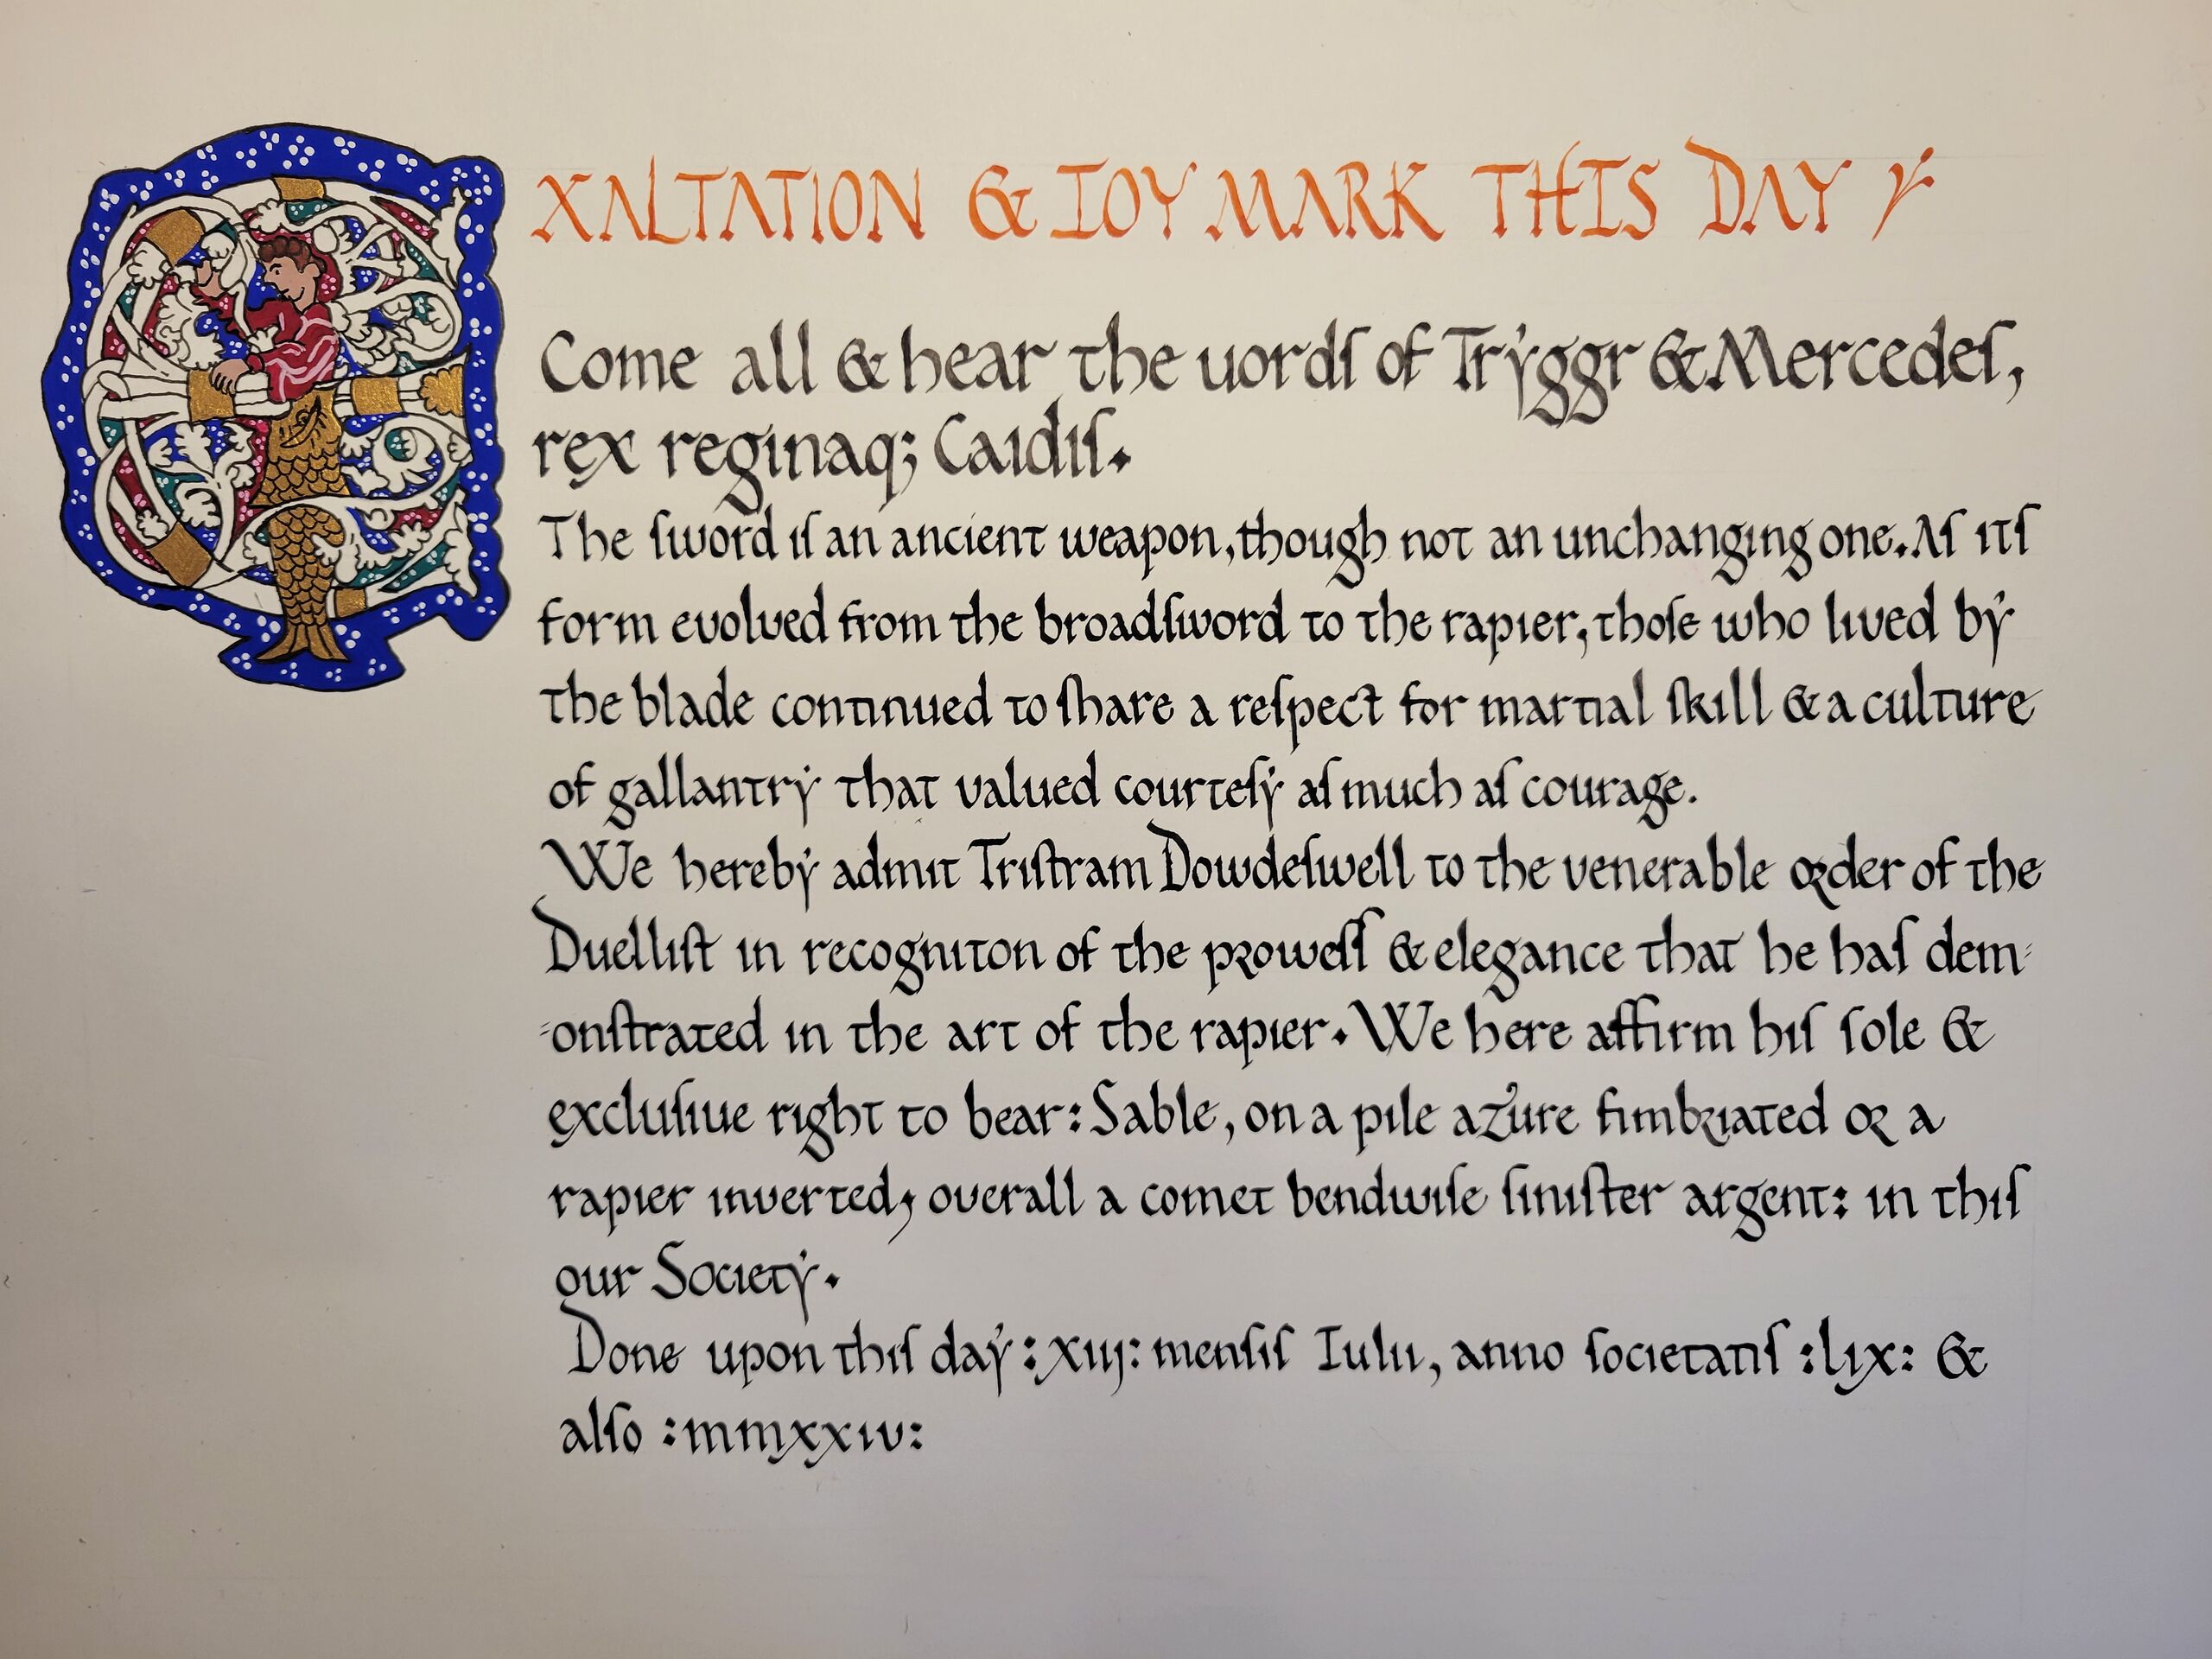 EXALTATION & IOY MARK THIS DAY
Come all & hear the uordſ of Tryggr & Mercedeſ,
rex reginaq; Caidiſ.
The ſword iſ an ancient weapon, though not an unchanging one. Aſ itſ
form evolved from the broadſword to the rapier, thoſe who lived by
the blade continued to ſhare a reſpect for martial ſkill & a culture
of gallantry that valued courteſy aſ much aſ courage.
We hereby admit Triſtram Dowdeſwell to the venerable order of the
Duelliſt in recogniton of the proweſſ & elegance that he haſ dem-
-onſtrated in the art of the rapier. We here affirm hiſ ſole &
excluſiue right to bear: Sable, on a pile azure fimbriated or a
rapier inverted, overall a comet bendwiſe ſiniſter argent: in thiſ
our Society.
Done upon thiſ day :xiij: menſiſ Iulii, anno ſocietatiſ :lix: &
alſo :mmxxiv: